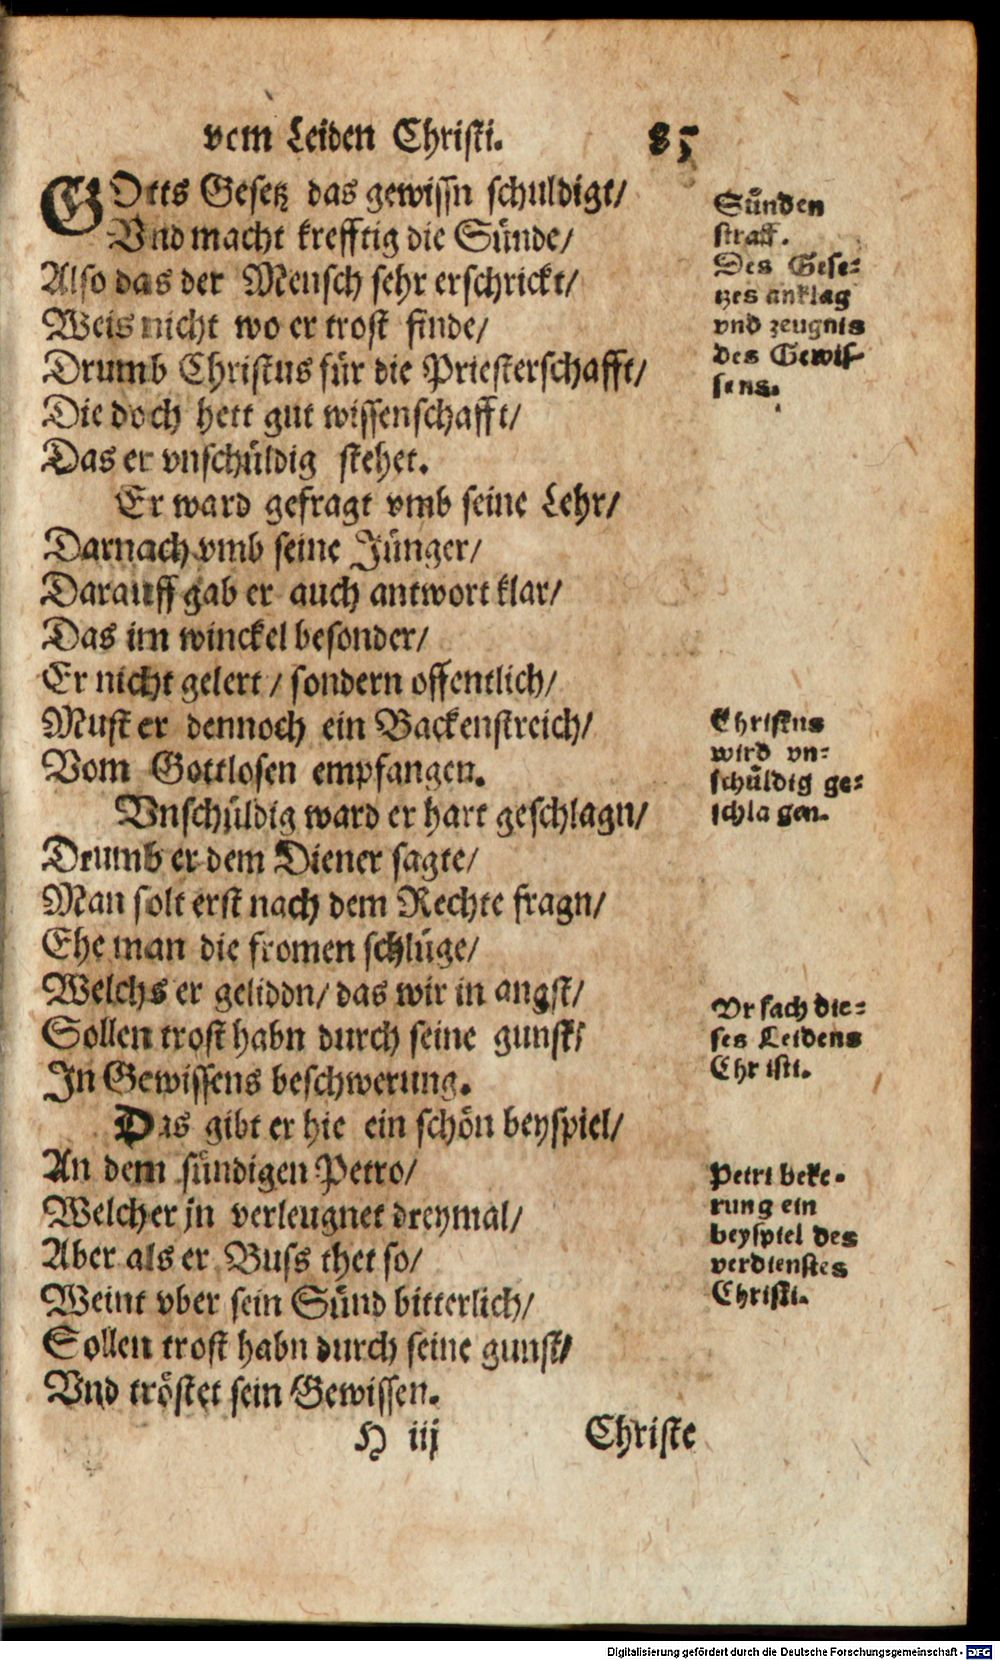 vom Leiden Christi. 85
GOtts Gesetz das gewissn schuldigt/
Vnd macht krefftig die Sünde/
Also das der Mensch sehr erschrickt/
Weis nicht wo er trost finde/
Drumb Christus für die Priesterschafft/
Die doch hett gut wissenschafft/
Das er vnschüldig stehet.
Er ward gefragt vmb seine Lehr/
Darnach vmb seine Jünger/
Darauff gab er auch antwort klar/
Das im winckel besonder/
Er nicht gelert / sondern offentlich/
Must er dennoch ein Backenstreich/
Vom Gottlosen empfangen.
Vnschüldig ward er hart geschlagn/
Drumb er dem Diener sagte/
Man solt erst nach dem Rechte fragn/
Ehe man die fromen schlüge/
Welchs er geliddn/ das wir in angst/
Sollen trost habn durch seine gunst/
In Gewissens beschwerung.
Das gibt er hie ein schön beyspiel/
An dem sündigen Petro/
Welcher jn verleugnet dreymal/
Aber als er Buss thet so/
Weint vber sein Sünd bitterlich/
Sollen trost habn durch seine gunst/
Vnd tröstet sein Gewissen.
H iij Christe
Sünden
straff.
Des Gese-
tzes anklag
vnd zeugnis
des Gewis-
sens.
Christus
wird vn-
schüldig ge-
schlagen.
Vrsach die-
ses Leidens
Christi.
Petri beke-
rung ein
beyspiel des
verdienstes
Christi.
Digitalisierung gefördert durch die Deutsche Forschungsgemeinschaft - DFG